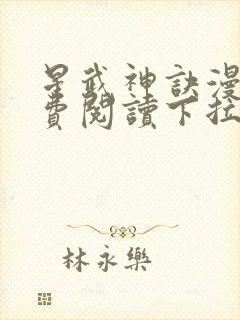 星武神訣漫
費閱讀下拉
林永樂